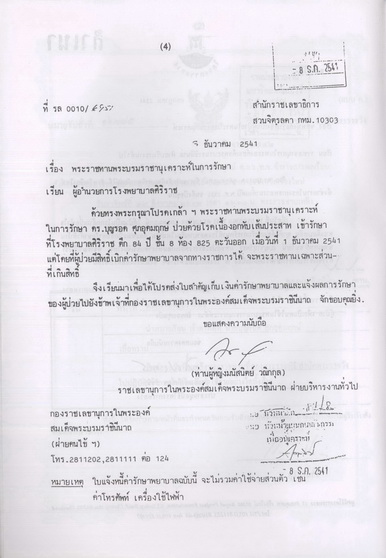 (4)
- 8 ธ.ค. 2541
ที่ รล 0010/
สำนักราชเลขาธิการ
สวนจิตรลดา กทม.10303
ธันวาคม 2541
เรื่อง พระราชทานพระบรมราชานุเคราะห์ในการรักษา
เรียน ผู้อำนวยการโรงพยาบาลศิริราช
ด้วยทรงพระกรุณาโปรดเกล้า ฯ พระราชทานพระบรมราชานุเคราะห์
ในการรักษา ดร.บุญรอด ศุภอุดมฤกษ์ ป่วยด้วยโรคเนื้องอกทับเส้นประสาท เข้ารักษา
ที่โรงพยาบาลศิริราช ตึก 84 ปี ชั้น 8 ห้อง 825 ตะวันออก เมื่อวันที่ 1 ธันวาคม 2541
แต่โดยที่ผู้ป่วยมีสิทธิ์เบิกค่ารักษาพยาบาลจากทางราชการได้ จะพระราชทานเฉพาะส่วน-
ที่เกินสิทธิ์
จึงเรียนมาเพื่อได้โปรดส่งใบสำคัญเก็บเงินค่ารักษาพยาบาลและแจ้งผลการรักษา
ของผู้ป่วยไปยังข้าพเจ้าที่กองราชเลขานุการในพระองค์สมเด็จพระบรมราชินีนาถ จักขอบคุณยิ่ง.
ขอแสดงความนับถือ
(ท่านผู้หญิงมนัสนิตย์ วณิกกุล)
ราชเลขานุการในพระองค์สมเด็จพระบรมราชินีนาถ ฝ่ายบริหารงานทั่วไป
กองราชเลขานุการในพระองค์
สมเด็จพระบรมราชินีนาถ
(ฝ่ายคนไข้ ฯ)
โทร.2811202,2811111 ต่อ 124
- 8 ธ.ค. 2541
หมายเหตุ ใบแจ้งหนี้ค่ารักษาพยาบาลฉบับนี้ จะไม่รวมค่าใช้จ่ายส่วนตัว เช่น
ค่าโทรศัพท์ เครื่องใช้ไฟฟ้า